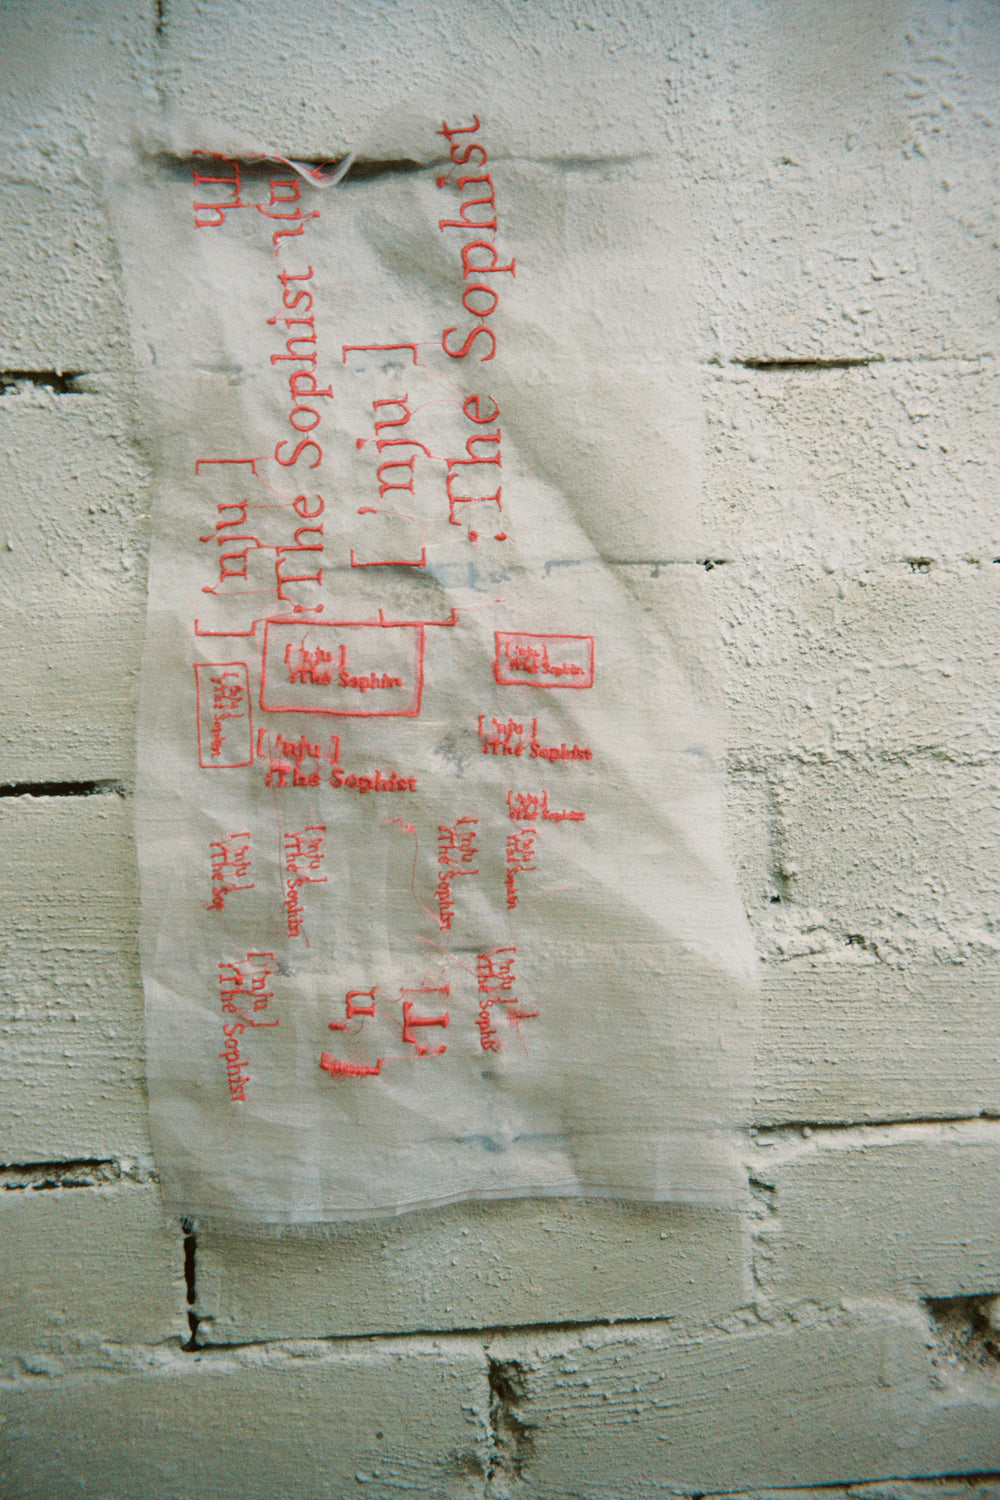 Th
'nju
[ 'nju ]
:The Sophist
[ 'nju ]
:The Sophist
[ 'nju ]
:The Sophist
[ 'nju ]
:The Sophist
[ 'nju ]
:The Sophist
[ 'nju ]
:The Sophist
[ 'nju ]
:The Sophist
[ 'nju ]
:The Sophist
[ 'nju ]
:The Sop
[ 'nju ]
:The Sophist
[ 'nju ]
:The Sophist
[ 'nju ]
:The Sophist
[ 'nju ]
:The Sophist
[ 'n
:T
[ 'nju ]
:The Sophis